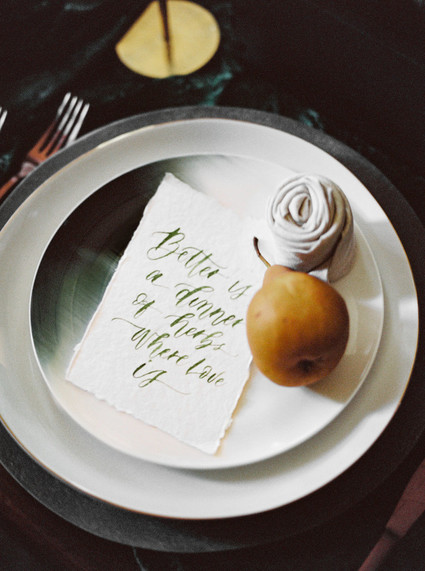 Better is
a dinner
of herbs
Where Love
is